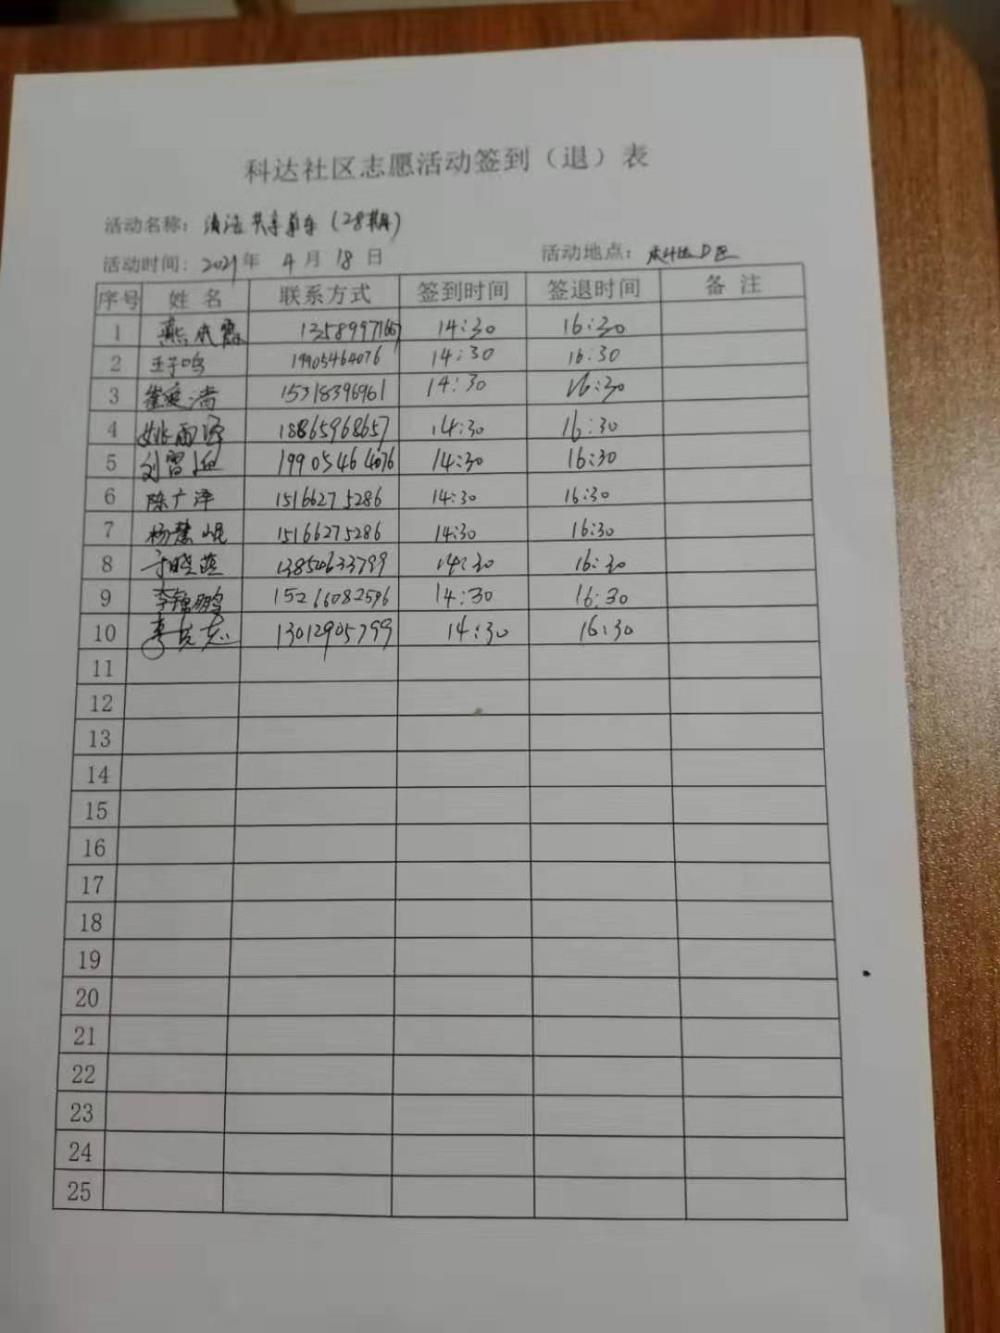 科达社区志愿活动签到（退）表
活动名称：清洁共享单车（28期）
活动时间：2021年 4月 18日 活动地点：D区
序号 姓名 联系方式 签到时间 签退时间 备注
1 燕 1358997166 14:30 16:30
2 王子鸣 19905464076 14:30 16:30
3 崔庭 15318396961 14:30 16:30
4 姚雨泽 18865968657 14:30 16:30
5 刘 19905464076 14:30 16:30
6 陈广泽 15166275286 14:30 16:30
7 杨慧 15166275286 14:30 16:30
8 于晓燕 14:30 16:30
9 李锦鹏 15266082596 14:30 16:30
10 李 13012905799 14:30 16:30
11
12
13
14
15
16
17
18
19
20
21
22
23
24
25